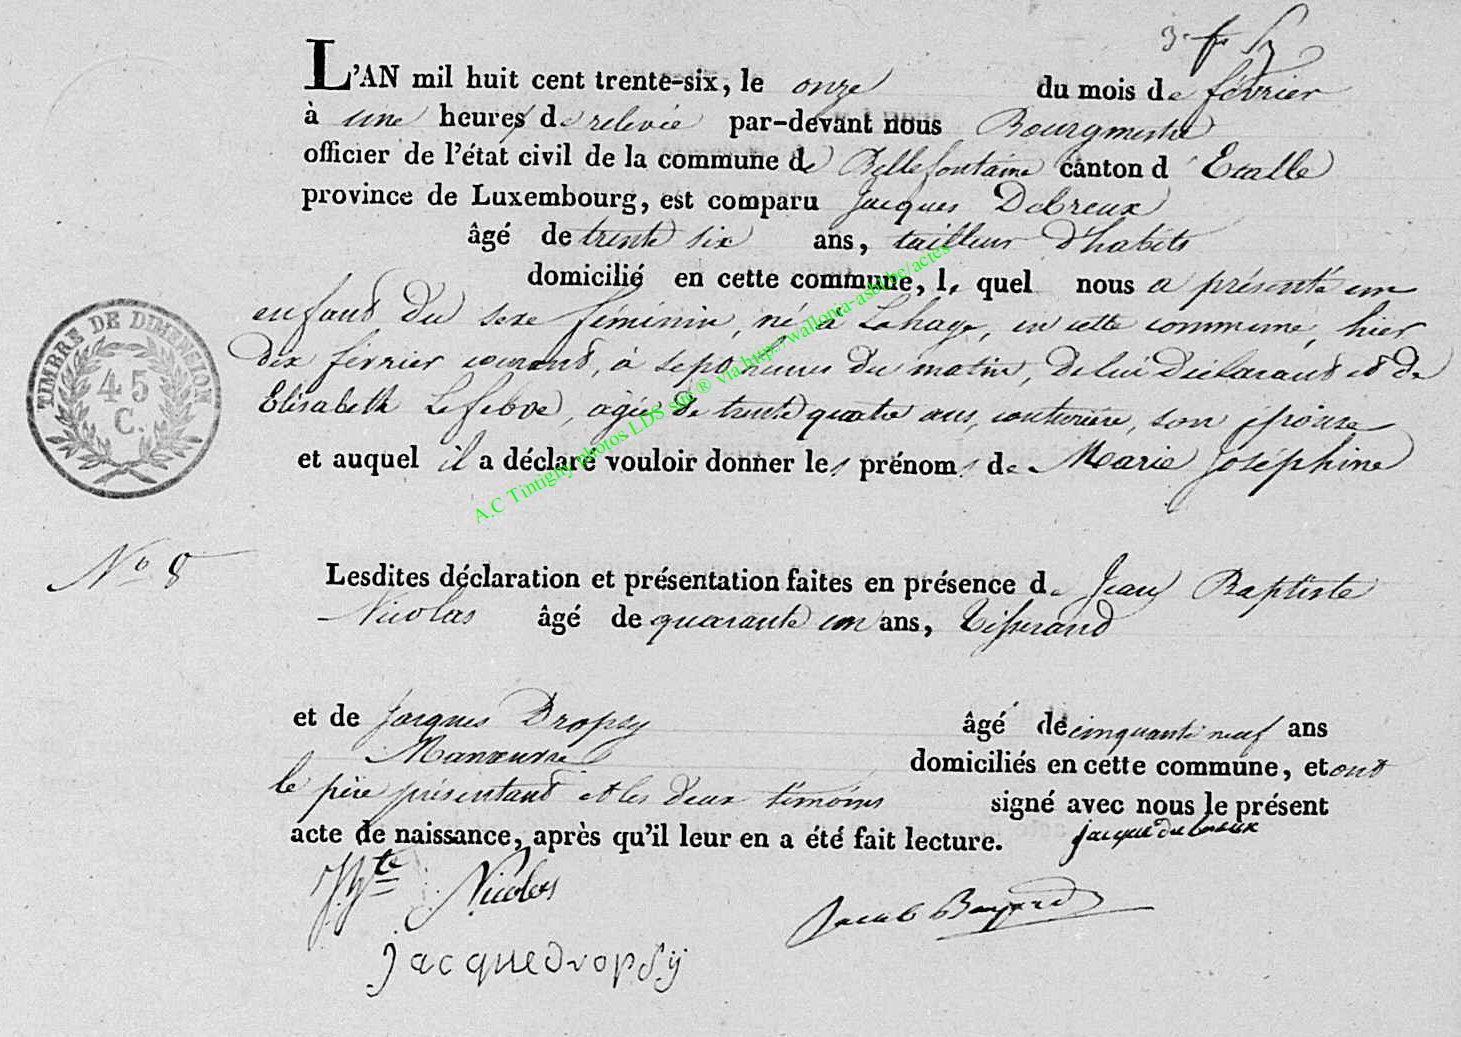 L'AN mil huit cent trente-six, le onze du mois de février
à une heures de relevée par-devant nous Bourgmestre
officier de l'état civil de la commune de Bellefontaine canton d'Etalle
province de Luxembourg, est comparu Jacques Debreux
âgé de trente six ans, tailleur d'habits
domicilié en cette commune, l. quel nous a présenté un
enfant du sexe féminin, né à Lahage, en cette commune, hier
dix février courant, à sept heures du matin, de lui Déclarant et de
Elisabeth Lefebve, agée de trente quatre ans, couturière, son épouse
et auquel il a déclaré vouloir donner les prénoms de Marie Joséphine
TIMBRE DE DIMENSION
45
C.
A.C Tintigny photos LDS site ® via http://wallonia-asbl.be/actes
No 8
Lesdites déclaration et présentation faites en présence de Jean Baptiste
Nicolas âgé de quarante un ans, Tisserand
et de Jacques Dropsy âgé de cinquante neuf ans
Manœuvre domiciliés en cette commune, et ont
le père présentant et les deux témoins signé avec nous le présent
acte de naissance, après qu'il leur en a été fait lecture. jacque debreux
Nicolas
Jacob Bayard
jacquedropsÿ